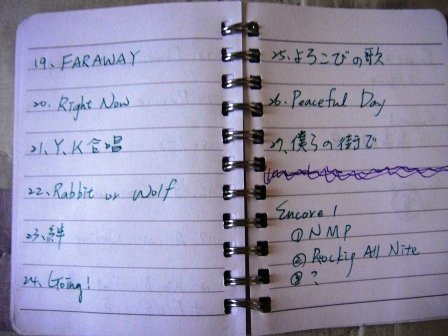 19. FARAWAY
20. Right Now
21. Y.K合唱
22. Rabbit or Wolf
23. 絆
24. Going!
25. よろこびの歌
26. Peaceful Day
27. 僕らの街で
Encore 1
① NMP
② Rockig All Nite
③ ?